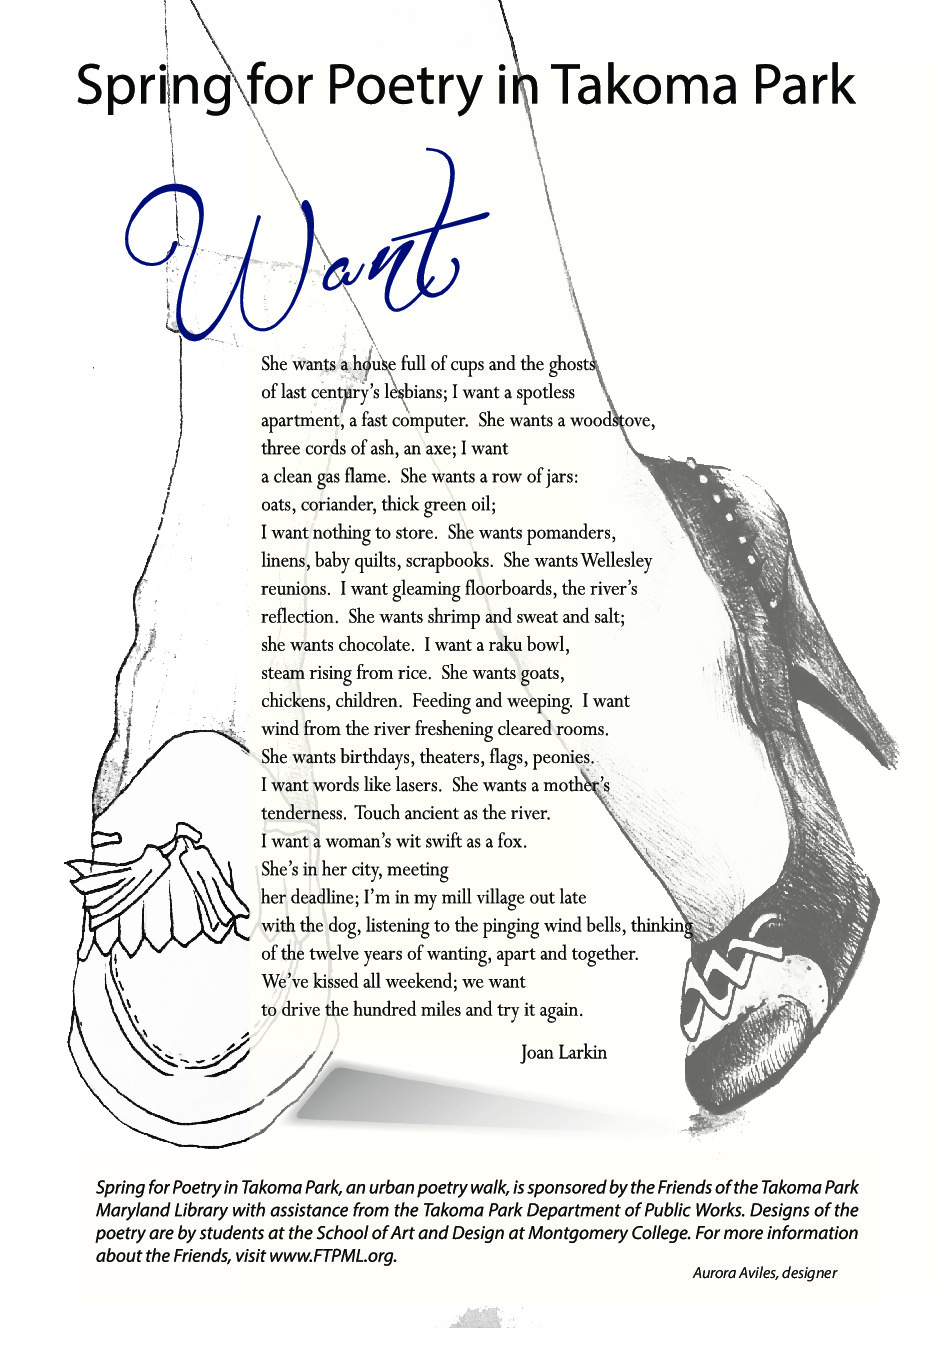 Spring for Poetry in Takoma Park
Want
She wants a house full of cups and the ghosts
of last century's lesbians; I want a spotless
apartment, a fast computer.  She wants a woodstove,
three cords of ash, an axe; I want
a clean gas flame.  She wants a row of jars:
oats, coriander, thick green oil;
I want nothing to store.  She wants pomanders,
linens, baby quilts, scrapbooks.  She wants Wellesley
reunions.  I want gleaming floorboards, the river's
reflection.  She wants shrimp and sweat and salt;
she wants chocolate.  I want a raku bowl,
steam rising from rice.  She wants goats,
chickens, children.  Feeding and weeping.  I want
wind from the river freshening cleared rooms.
She wants birthdays, theaters, flags, peonies.
I want words like lasers.  She wants a mother's
tenderness.  Touch ancient as the river.
I want a woman's wit swift as a fox.
She's in her city, meeting
her deadline; I'm in my mill village out late
with the dog, listening to the pinging wind bells, thinking
of the twelve years of wanting, apart and together.
We've kissed all weekend; we want
to drive the hundred miles and try it again.
Joan Larkin
Spring for Poetry in Takoma Park, an urban poetry walk, is sponsored by the Friends of the Takoma Park
Maryland Library with assistance from the Takoma Park Department of Public Works. Designs of the
poetry are by students at the School of Art and Design at Montgomery College. For more information
about the Friends, visit www.FTPML.org.
Aurora Aviles, designer